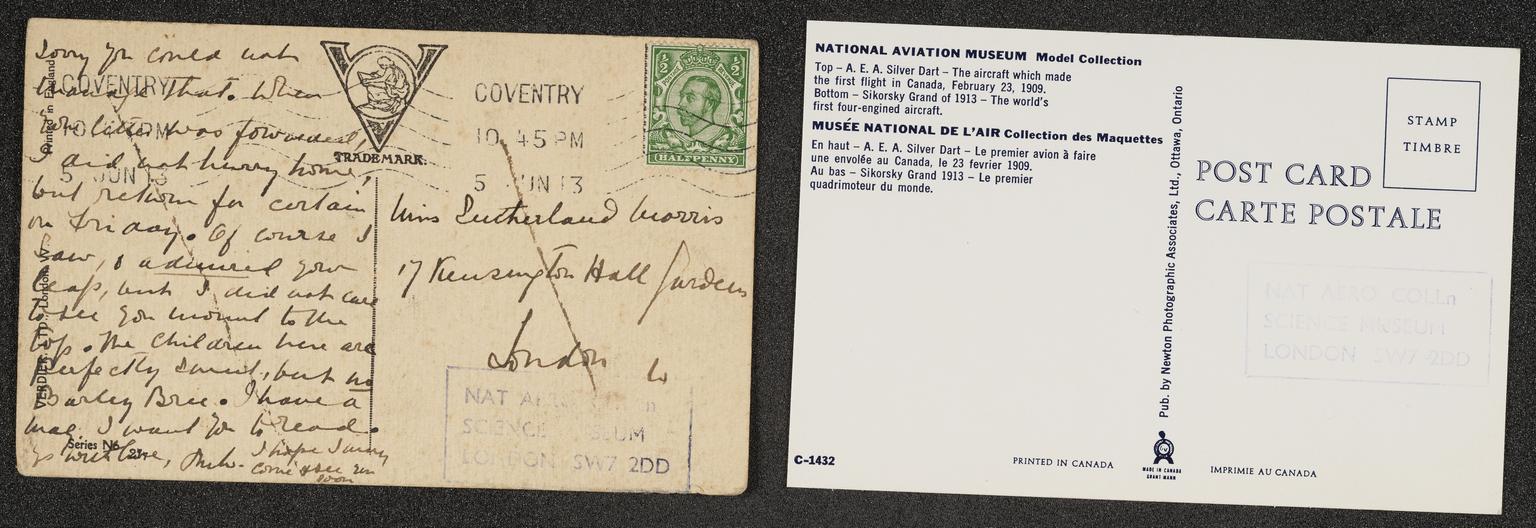 Sorry you could not
manage that. When
your letter was forwarded,
I did not hurry home,
but return for certain
on Friday. Of course I
saw, & admired your
leap, but I did not care
to see you mount to the
top. The children here are
perfectly sweet, but no
I have a
I want you to read.
with love,
I hope I may
come & see you
soon
Printed in England
VERDIER LTD., London, W.
Series No. 23
COVENTRY
10 45 PM
5 JUN 13
TRADE MARK.
COVENTRY
10. 45 PM
5 JUN 13
½ ½
(HALFPENNY)
Miss Sutherland Morris
17 Kensington Hall Gardens
London W
NAT AERO COLLn
SCIENCE MUSEUM
LONDON SW7 2DD
NATIONAL AVIATION MUSEUM Model Collection
Top – A. E. A. Silver Dart – The aircraft which made
the first flight in Canada, February 23, 1909.
Bottom – Sikorsky Grand of 1913 – The world's
first four-engined aircraft.
MUSÉE NATIONAL DE L'AIR Collection des Maquettes
En haut – A. E. A. Silver Dart – Le premier avion à faire
une envolée au Canada, le 23 fevrier 1909.
Au bas – Sikorsky Grand 1913 – Le premier
quadrimoteur du monde.
C-1432
Pub. by Newton Photographic Associates, Ltd., Ottawa, Ontario
STAMP
TIMBRE
POST CARD
CARTE POSTALE
NAT AERO COLLn
SCIENCE MUSEUM
LONDON SW7 2DD
PRINTED IN CANADA
MADE IN CANADA
GRANT MANN
IMPRIMIE AU CANADA